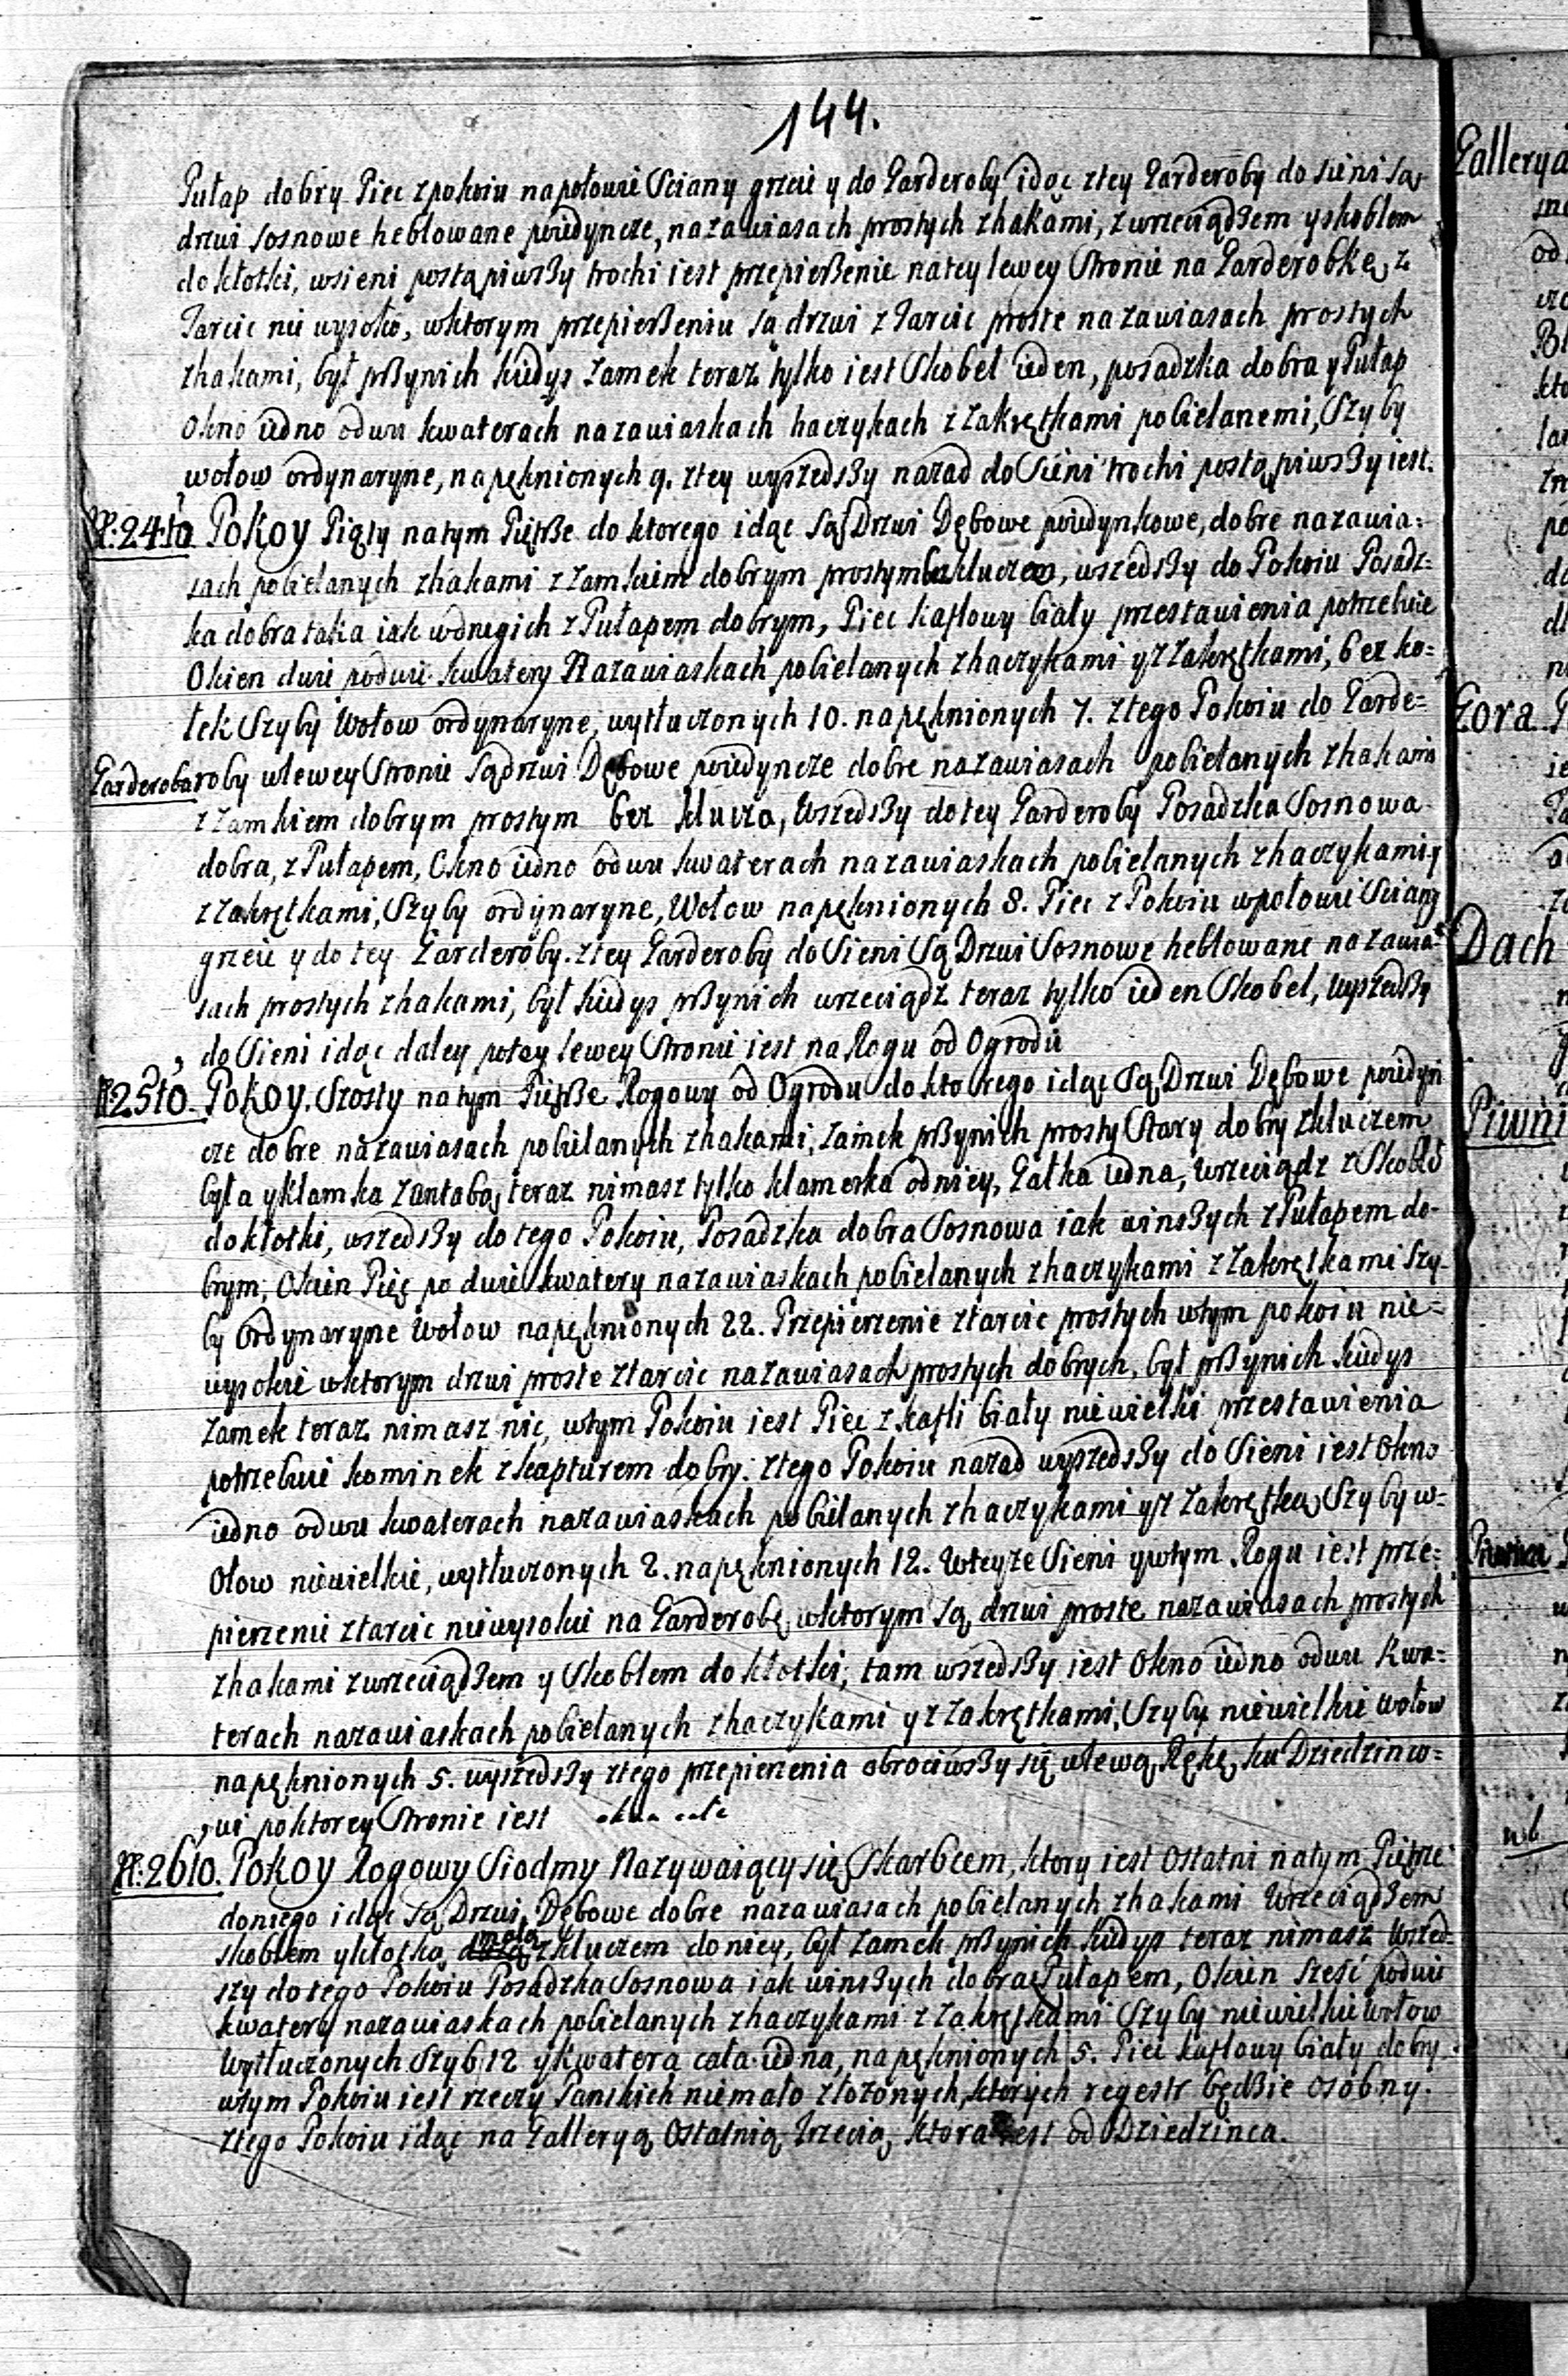 144.
Pułap dobry Piec z pokoiu na połowie Sciany grzeie y do Garderoby idąc z tey Garderoby do sieni są
drzwi sosnowe heblowane poiedyncze, na zawiasach prostych z hakami, z wrzeciądzem y skoblem
do kłotki, w sieni postąpiwszy trochi iest przepierzenie na tey lewey Stronie na Garderobkę z
Tarcic nie wysoko, w ktorym przepierzeniu są drzwi z Tarcic proste na zawiasach prostych
z hakami, był przy nich kiedys Zamek teraz tylko iest Skobel ieden, posadzka dobra y Pułap
Okno iedno o dwu kwaterach na zawiaskach haczykach z Zakrętkami pobielanemi, Szyby
w ołow ordynaryne, napęknionych 9. z tey wyszedszy nazad do Sieni trochi postąpiwszy iest.
N: 24to Pokoy Piąty na tym Piętrze do ktorego idąc są Drzwi Dębowe poiedynkowe, dobre na zawia=
sach pobielanych z hakami z Zamkiem dobrym prostym bez klucza, wszedszy do Pokoiu Posadz=
ka dobra taka iak w drugich z Pułapem dobrym, Piec kaflowy biały przestawienia potrzebuie
Okien dwie po dwie kwatery Na zawiaskach pobielanych z haczykami y z Zakrętkami, bez ko=
łek Szyby w ołow ordynaryne, wytłuczonych 10. napęknionych 7. z tego Pokoiu do Garde=
Garderoba roby w lewey Stronie są drzwi Dębowe poiedyncze dobre na zawiasach pobielanych z hakami
z Zamkiem dobrym prostym bez klucza, Wszedszy do tey Garderoby Posadzka Sosnowa
dobra, z Pułapem, Okno iedno o dwu kwaterach na zawiaskach pobielanych z haczykami y
z Zakrętkami, Szyby ordynaryne, w ołow napęknionych 8. Piec z Pokoiu w połowie Sciany
grzeie y do tey Garderoby. z tey Garderoby do Sieni są Drzwi Sosnowe heblowane na zawia=
sach prostych z hakami, był kiedys przy nich wrzeciądz teraz tylko ieden Skobel, wyszedszy
do Sieni idąc daley po tey lewey Stronie iest na Rogu od Ogrodu
N: 25to. Pokoy. Szosty na tym Piętrze Rogowy od Ogrodu do ktorego idąc są Drzwi Dębowe poiedyn
cze dobre na zawiasach pobielanych z hakami, zamek przy nich prosty Stary dobry z kluczem
była y klamka z antabą teraz nimasz tylko klamerka od niey, Gałka iedna, wrzeciądz z Skoblo
do kłotki, wszedszy do tego Pokoiu, Posadzka dobra Sosnowa iak w inszych z Pułapem do-
brym, Okien Pięc po dwie kwatery na zawiaskach pobielanych z haczykami z Zakrętkami Szy-
by Ordynaryne w ołow napęknionych 22. Przepierzenie z tarcic prostych w tym pokoiu nie=
wysokie w ktorym drzwi proste z tarcic na zawiasach prostych dobrych, był przy nich kiedys
Zamek teraz nimasz nic, w tym Pokoiu iest Piec z kafli biały niewielki przestawienia
potrzebuie kominek z kapturem dobry. z tego Pokoiu nazad wyszedszy do Sieni iest Okno
iedno o dwu kwaterach na zawiaskach pobielanych z haczykami y z Zakrętką Szyby w=
Ołow niewielkie, wytłuczonych 2. napęknionych 12. W teyze Sieni y w tym Rogu iest prze=
pierzenie z tarcic niewysokie na Garderobę w ktorym są drzwi proste na zawiasach prostych
z hakami z wrzeciądzem y Skoblem do kłotki, tam wszedszy iest Okno iedno o dwu Kwa=
terach na zawiaskach pobielanych z haczykami y z Zakrętkami, Szyby niewielkie w ołow
napęknionych 5. wyszedszy z tego przepierzenia obrociwszy się w lewą Rękę ku Dziedzinco=
wi po ktorey Stronie iest
N: 26to. Pokoy Rogowy Siodmy Nazywaiący się Skarbcem, ktory iest Ostatni na tym Piętrze
do niego idąc są Drzwi Dębowe dobre na zawiasach pobielanych z hakami Wrzeciądzem
skoblem y kłotką małą z kluczem do niey, był Zamek przy nich kiedys teraz nimasz Wszed-
szy do tego Pokoiu Posadzka Sosnowa iak w inszych dobra z Pułapem, Okien szesć po dwie
kwatery na zawiaskach pobielanych z haczykami z Zakrętkami Szyby niewielkie w ołow
Wytłuczonych Szyb 12 y kwatera cała iedna, napęknionych 5. Piec kaflowy biały dobry.
w tym Pokoiu iest rzeczy Panskich niemało złozonych, ktorych regestr będzie osobny.
z tego Pokoiu idąc na Galleryą Ostatnią Trzecią ktora iest od Dziedzinca.
Gallerya
Gora
Dach
Piwni